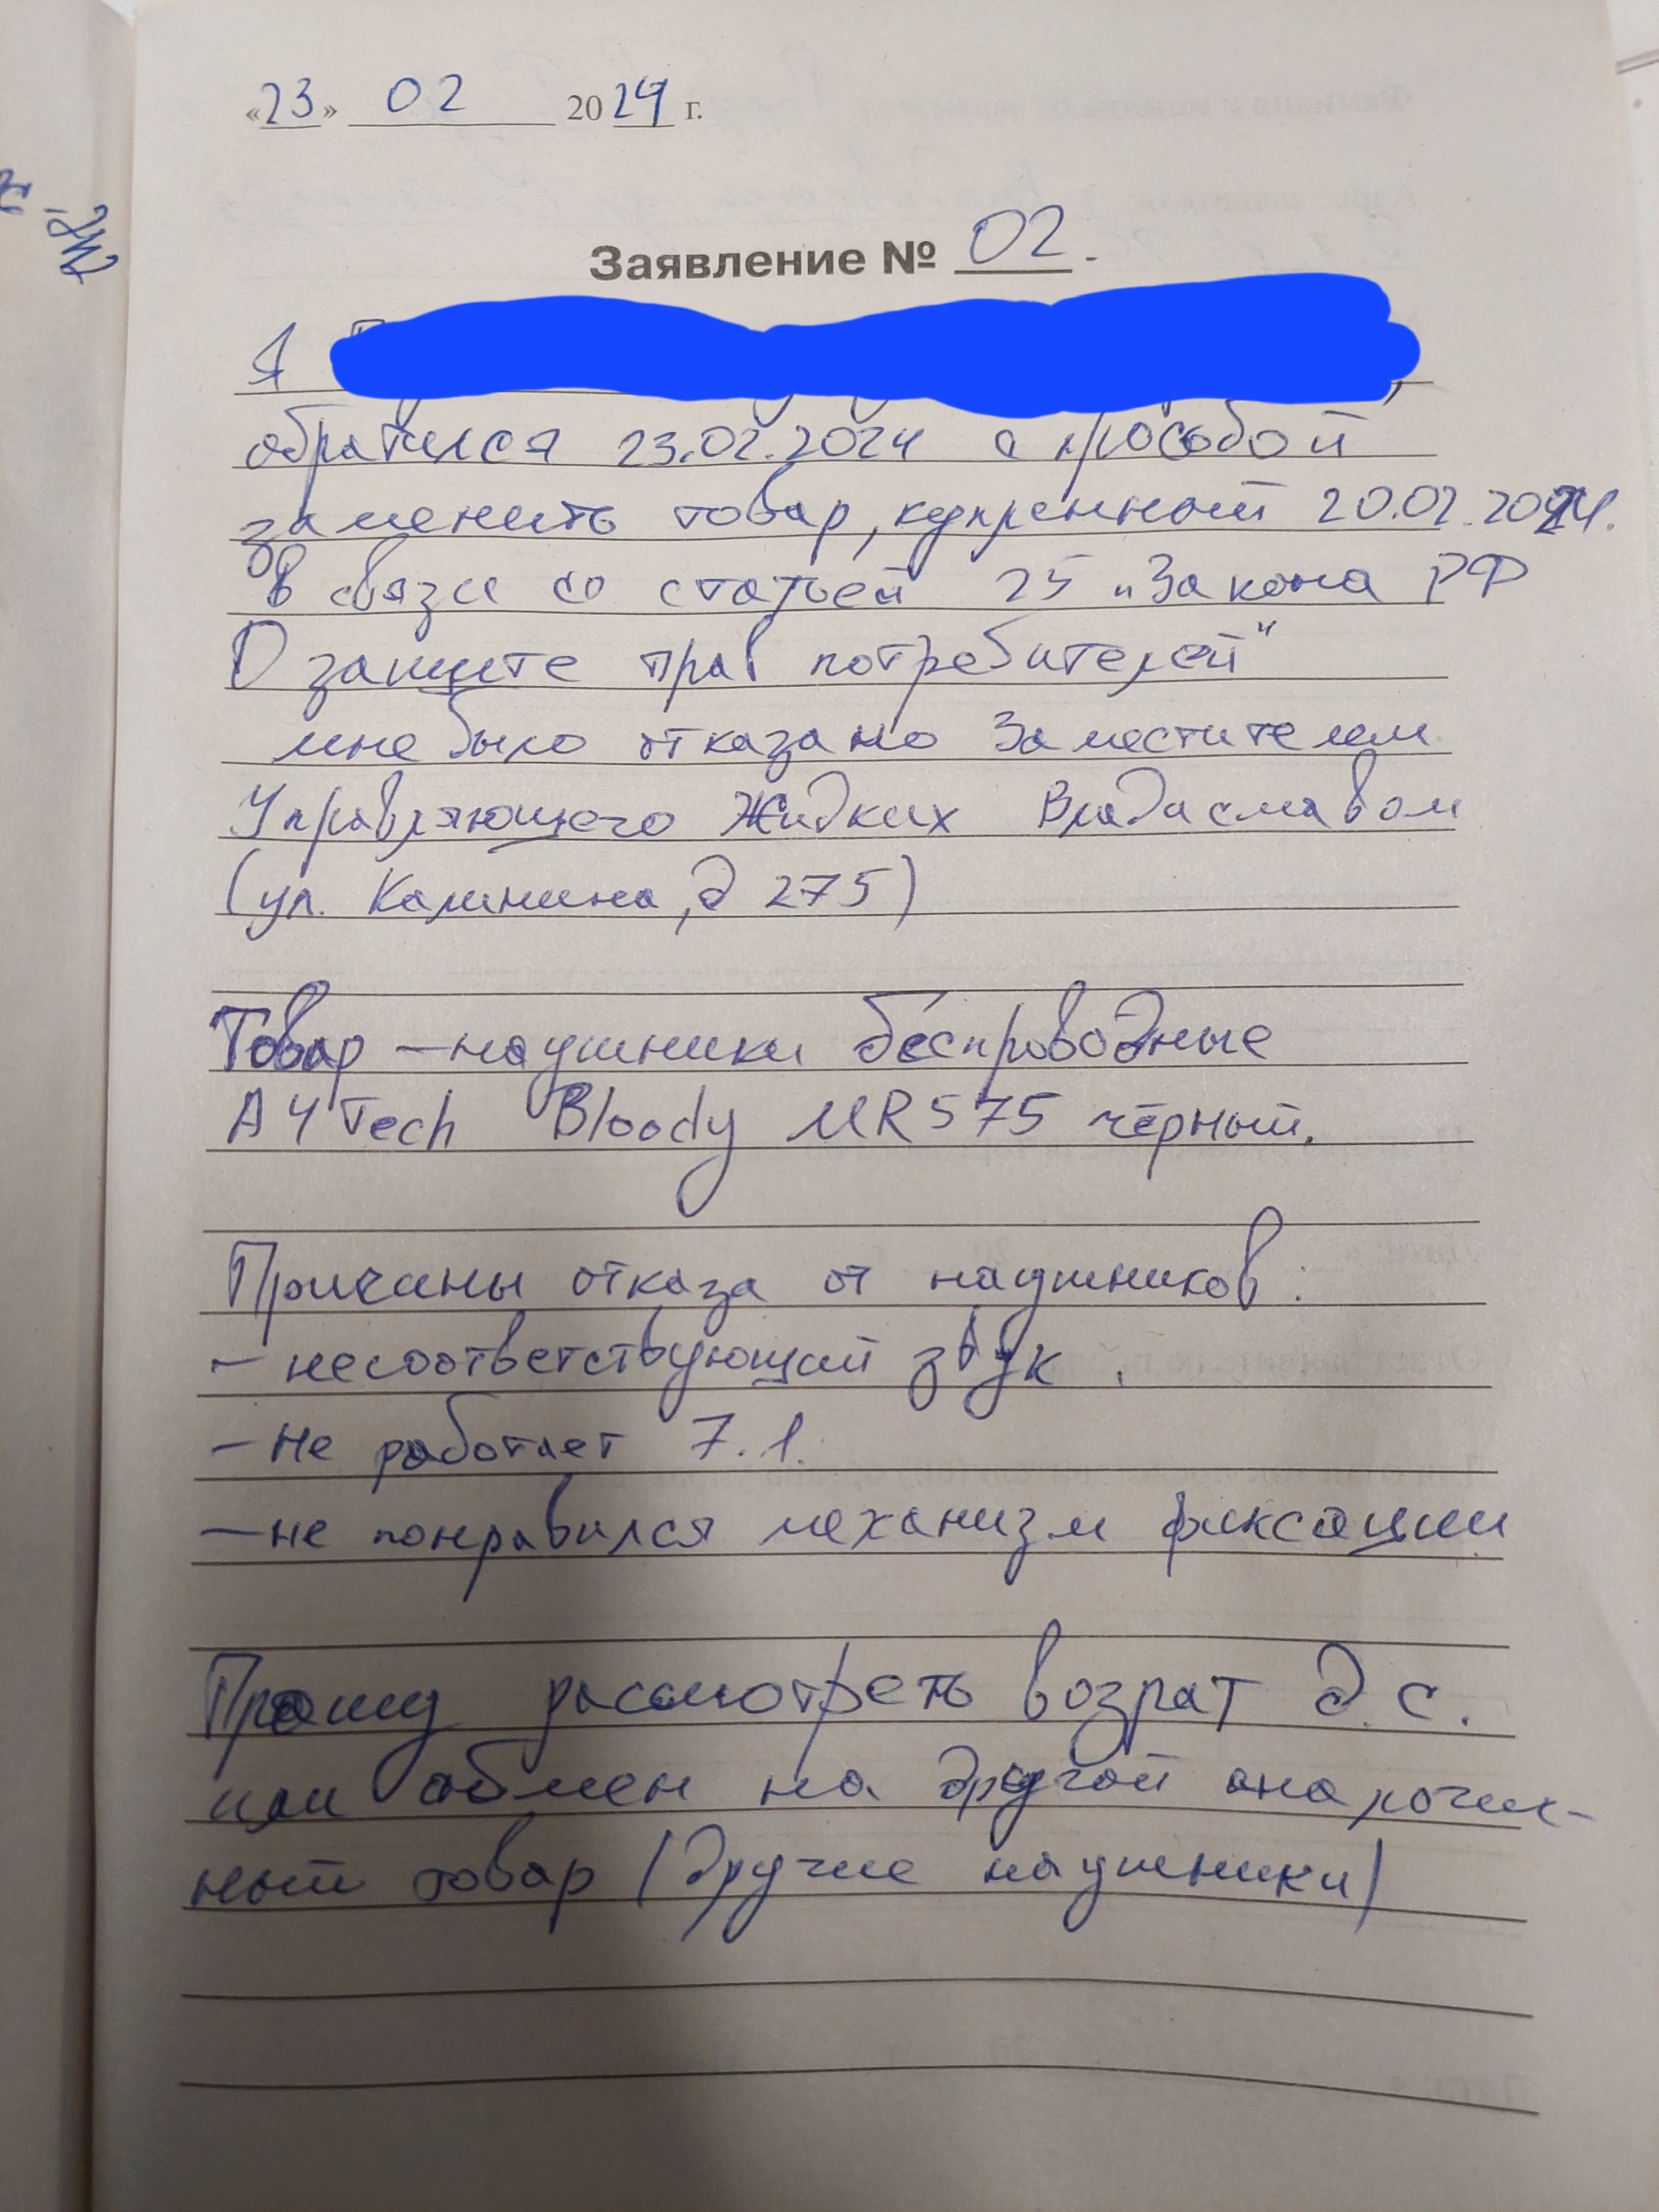 «23» 02 2024 г.
Заявление № 02.
Я
обратился 23.02.2024 с прособой
заменить товар, купренный 20.02.2024.
В связи со статьей 25 "Закона РФ
О защите прав потребителей"
мне было отказано Заместителем
Управляющего Жидких Владиславом
(ул. Калинина, д 275)
Товар – наушники беспроводные
A4Tech Bloody MR575 чёрный.
Причины отказа от наушников:
- несоответствующий звук.
- Не работает 7.1.
- не понравился механизм фиксации
Прошу рассмотреть возрат д.с.
или обмен на другой аналогич-
ный товар (другие наушники)